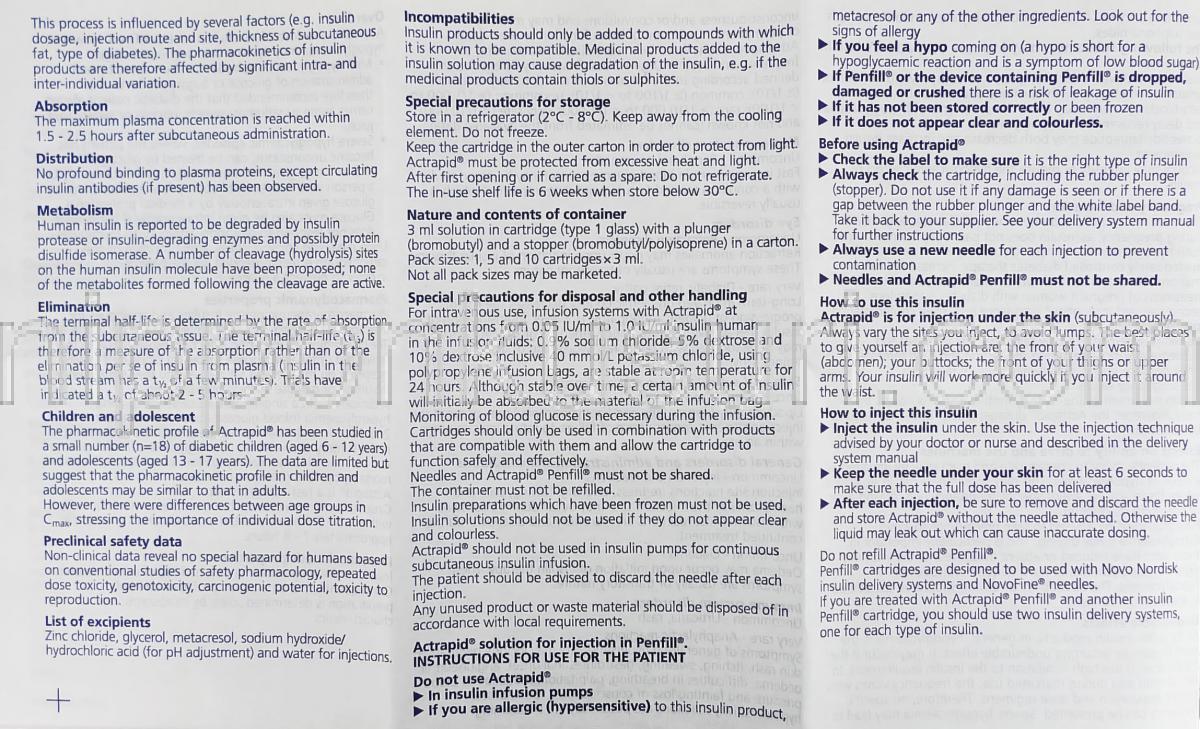 This process is influenced by several factors (e.g. insulin
dosage, injection route and site, thickness of subcutaneous
fat, type of diabetes). The pharmacokinetics of insulin
products are therefore affected by significant intra- and
inter-individual variation.
Absorption
The maximum plasma concentration is reached within
1.5 - 2.5 hours after subcutaneous administration.
Distribution
No profound binding to plasma proteins, except circulating
insulin antibodies (if present) has been observed.
Metabolism
Human insulin is reported to be degraded by insulin
protease or insulin-degrading enzymes and possibly protein
disulfide isomerase. A number of cleavage (hydrolysis) sites
on the human insulin molecule have been proposed; none
of the metabolites formed following the cleavage are active.
Elimination
The terminal half-life is determined by the rate of absorption
from the subcutaneous tissue. The terminal half-life (t½) is
therefore a measure of the absorption rather than of the
elimination per se of insulin from plasma (insulin in the
blood stream has a t½ of a few minutes). Trials have
indicated a t½ of about 2 - 5 hours.
Children and adolescent
The pharmacokinetic profile of Actrapid® has been studied in
a small number (n=18) of diabetic children (aged 6 - 12 years)
and adolescents (aged 13 - 17 years). The data are limited but
suggest that the pharmacokinetic profile in children and
adolescents may be similar to that in adults.
However, there were differences between age groups in
Cmax, stressing the importance of individual dose titration.
Preclinical safety data
Non-clinical data reveal no special hazard for humans based
on conventional studies of safety pharmacology, repeated
dose toxicity, genotoxicity, carcinogenic potential, toxicity to
reproduction.
List of excipients
Zinc chloride, glycerol, metacresol, sodium hydroxide/
hydrochloric acid (for pH adjustment) and water for injections.
Incompatibilities
Insulin products should only be added to compounds with which
it is known to be compatible. Medicinal products added to the
insulin solution may cause degradation of the insulin, e.g. if the
medicinal products contain thiols or sulphites.
Special precautions for storage
Store in a refrigerator (2°C - 8°C). Keep away from the cooling
element. Do not freeze.
Keep the cartridge in the outer carton in order to protect from light.
Actrapid® must be protected from excessive heat and light.
After first opening or if carried as a spare: Do not refrigerate.
The in-use shelf life is 6 weeks when store below 30°C.
Nature and contents of container
3 ml solution in cartridge (type 1 glass) with a plunger
(bromobutyl) and a stopper (bromobutyl/polyisoprene) in a carton.
Pack sizes: 1, 5 and 10 cartridges×3 ml.
Not all pack sizes may be marketed.
Special precautions for disposal and other handling
For intravenous use, infusion systems with Actrapid® at
concentrations from 0.05 IU/ml to 1.0 IU/ml insulin human
in the infusion fluids: 0.9% sodium chloride, 5% dextrose and
10% dextrose inclusive 40 mmol/L potassium chloride, using
polypropylene infusion bags, are stable at room temperature for
24 hours. Although stable over time, a certain amount of insulin
will initially be absorbed to the material of the infusion bag.
Monitoring of blood glucose is necessary during the infusion.
Cartridges should only be used in combination with products
that are compatible with them and allow the cartridge to
function safely and effectively.
Needles and Actrapid® Penfill® must not be shared.
The container must not be refilled.
Insulin preparations which have been frozen must not be used.
Insulin solutions should not be used if they do not appear clear
and colourless.
Actrapid® should not be used in insulin pumps for continuous
subcutaneous insulin infusion.
The patient should be advised to discard the needle after each
injection.
Any unused product or waste material should be disposed of in
accordance with local requirements.
Actrapid® solution for injection in Penfill®.
INSTRUCTIONS FOR USE FOR THE PATIENT
Do not use Actrapid®
▶ In insulin infusion pumps
▶ If you are allergic (hypersensitive) to this insulin product,
metacresol or any of the other ingredients. Look out for the
signs of allergy
▶ If you feel a hypo coming on (a hypo is short for a
hypoglycaemic reaction and is a symptom of low blood sugar)
▶ If Penfill® or the device containing Penfill® is dropped,
damaged or crushed there is a risk of leakage of insulin
▶ If it has not been stored correctly or been frozen
▶ If it does not appear clear and colourless.
Before using Actrapid®
▶ Check the label to make sure it is the right type of insulin
▶ Always check the cartridge, including the rubber plunger
(stopper). Do not use it if any damage is seen or if there is a
gap between the rubber plunger and the white label band.
Take it back to your supplier. See your delivery system manual
for further instructions
▶ Always use a new needle for each injection to prevent
contamination
▶ Needles and Actrapid® Penfill® must not be shared.
How to use this insulin
Actrapid® is for injection under the skin (subcutaneously).
Always vary the sites you inject, to avoid lumps. The best places
to give yourself an injection are the front of your waist
(abdomen); your buttocks; the front of your thighs or upper
arms. Your insulin will work more quickly if you inject it around
the waist.
How to inject this insulin
▶ Inject the insulin under the skin. Use the injection technique
advised by your doctor or nurse and described in the delivery
system manual
▶ Keep the needle under your skin for at least 6 seconds to
make sure that the full dose has been delivered
▶ After each injection, be sure to remove and discard the needle
and store Actrapid® without the needle attached. Otherwise the
liquid may leak out which can cause inaccurate dosing.
Do not refill Actrapid® Penfill®.
Penfill® cartridges are designed to be used with Novo Nordisk
insulin delivery systems and NovoFine® needles.
If you are treated with Actrapid® Penfill® and another insulin
Penfill® cartridge, you should use two insulin delivery systems,
one for each type of insulin.